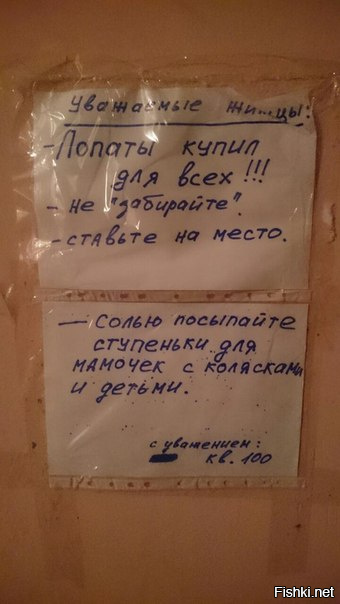 Уважаемые жильцы:
-Лопаты купил
для всех!!!
- не "забирайте".
-ставьте на место.
— Солью посыпайте
ступеньки для
мамочек с колясками
и детьми.
с уважением:
кв. 100
Fishki.net